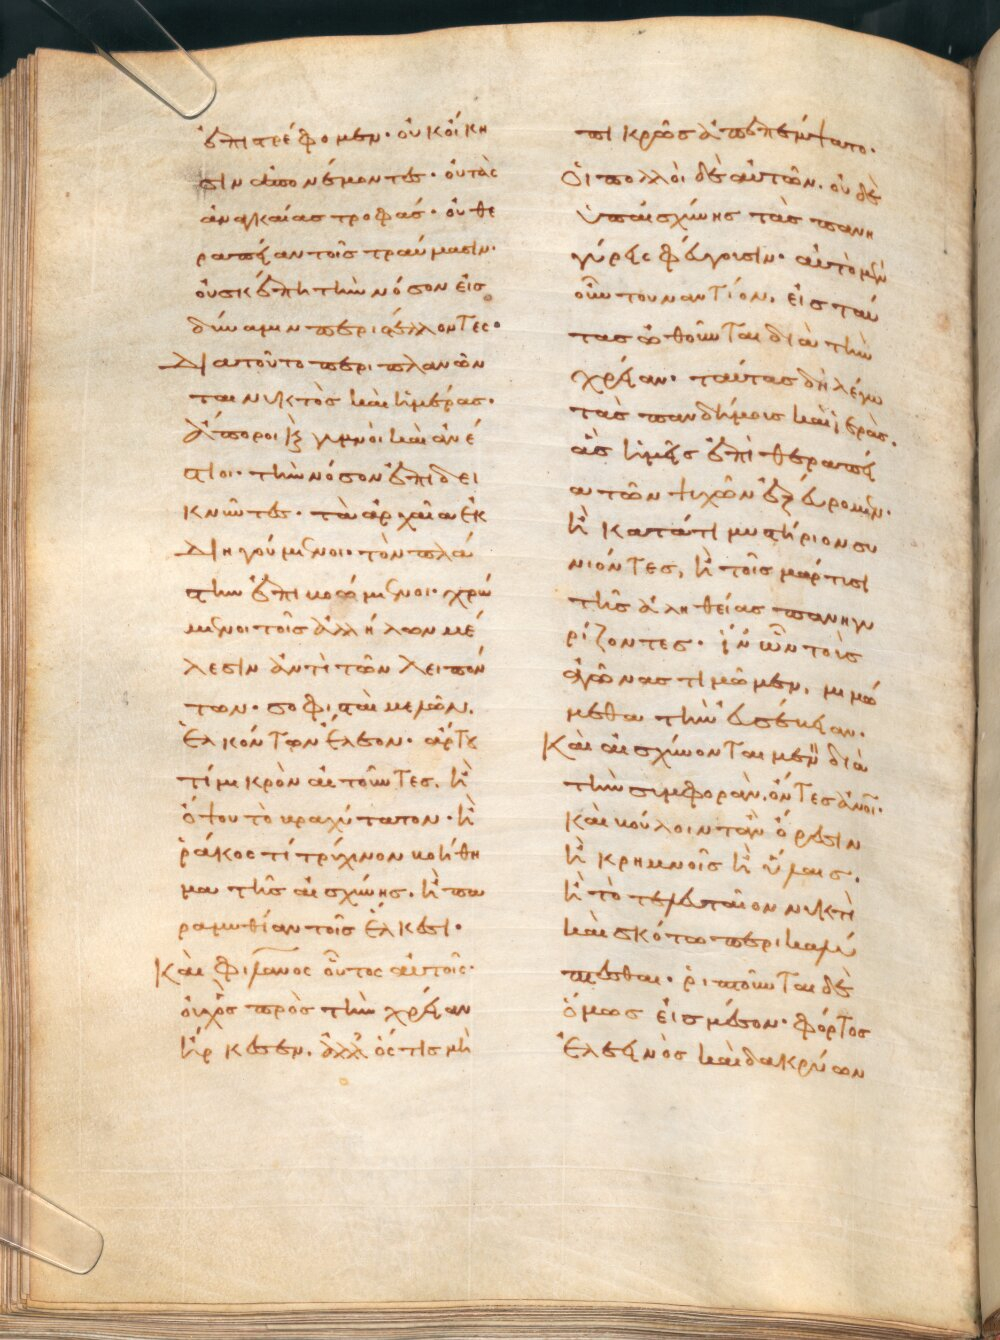 ἐπιτρέφομεν· οὐκ οἴκη
σιν ἀπονέμοντες· οὐ τὰς
ἀναγκαίας τροφάς· οὐ θε
ραπείαν τοῖς τραύμασιν·
οὐ σκέπη τὴν νόσον εἰς
δύναμιν περιστέλλοντες·
Διατοῦτο περιπλανῶν
ται νυκτὸς καὶ ἡμέρας·
ἄποροι καὶ γυμνοὶ καὶ ἀνέ
στιοι· τὴν νόσον ἐπιδει
κνύντες· τὰ ἀρχαῖα ἐκ
Διηγούμενοι· τὸν πλά
στην ἐπιβοώμενοι· χρώ
μενοι τοῖς ἀλλήλων μέ
λεσιν ἀντὶ τῶν λειπόν
των· σοφισταὶ μελῶν,
ἑλκόντων ἔλεον· ἄρτου
τὶ μικρὸν αἰτοῦντες, ἢ
ὄψου τὸ βραχύτατον· ἢ
ῥάκος τὶ τρύχινον βοήθη
μα τῆς αἰσχύνης. ἢ πα
ραμυθίαν τοῖς ἕλκεσι·
Καὶ φιλανος οὗτος αὐτοῖς·
οὐχ ὃς πρὸς τὴν χρείαν
ἤρκεσεν. ἀλλ' ὅστις μὴ
πικρῶς ἀπεπέμψατο.
Οἱ πολλοὶ δὲ αὐτῶν, οὐδὲ
ὑπ' αἰσχύνης τὰς πανη
γύρεις φεύγουσιν· αὐτὸ μὲν
οὖν τουναντίον, εἰς ταύ
τας ὠθοῦνται διὰ τὴν
χρείαν· ταύτας δὴ λέγω
τὰς πανδήμους καὶ ἱεράς.
ἃς ἡμεῖς ἐπὶ θεραπεί
α τῶν ψυχῶν ἐξεύρομεν·
ἢ κατά τι μυστήριον συ
νιόντες, ἢ τοῖς μάρτυσι
τῆς ἀληθείας πανηγυ
ρίζοντες· ἵν' ὧν τοὺς
ἀγῶνας τιμῶμεν, μιμώ
μεθα τὴν εὐσέβειαν·
Καὶ αἰσχύνονται μὲν διὰ
τὴν συμφορὰν, ὄντες ἄνοι·
καὶ βούλοιντ' ἂν ὄρεσιν
ἢ κρημνοῖς ἢ ὕλαις.
ἢ τὸ τελευταῖον νυκτὶ
καὶ σκότω περικαλύ
πτεσθαι· ῥιπτοῦνται δὲ
ὅμως εἰς μέσον· φόρτος
ἐλεεινὸς καὶ δακρύων